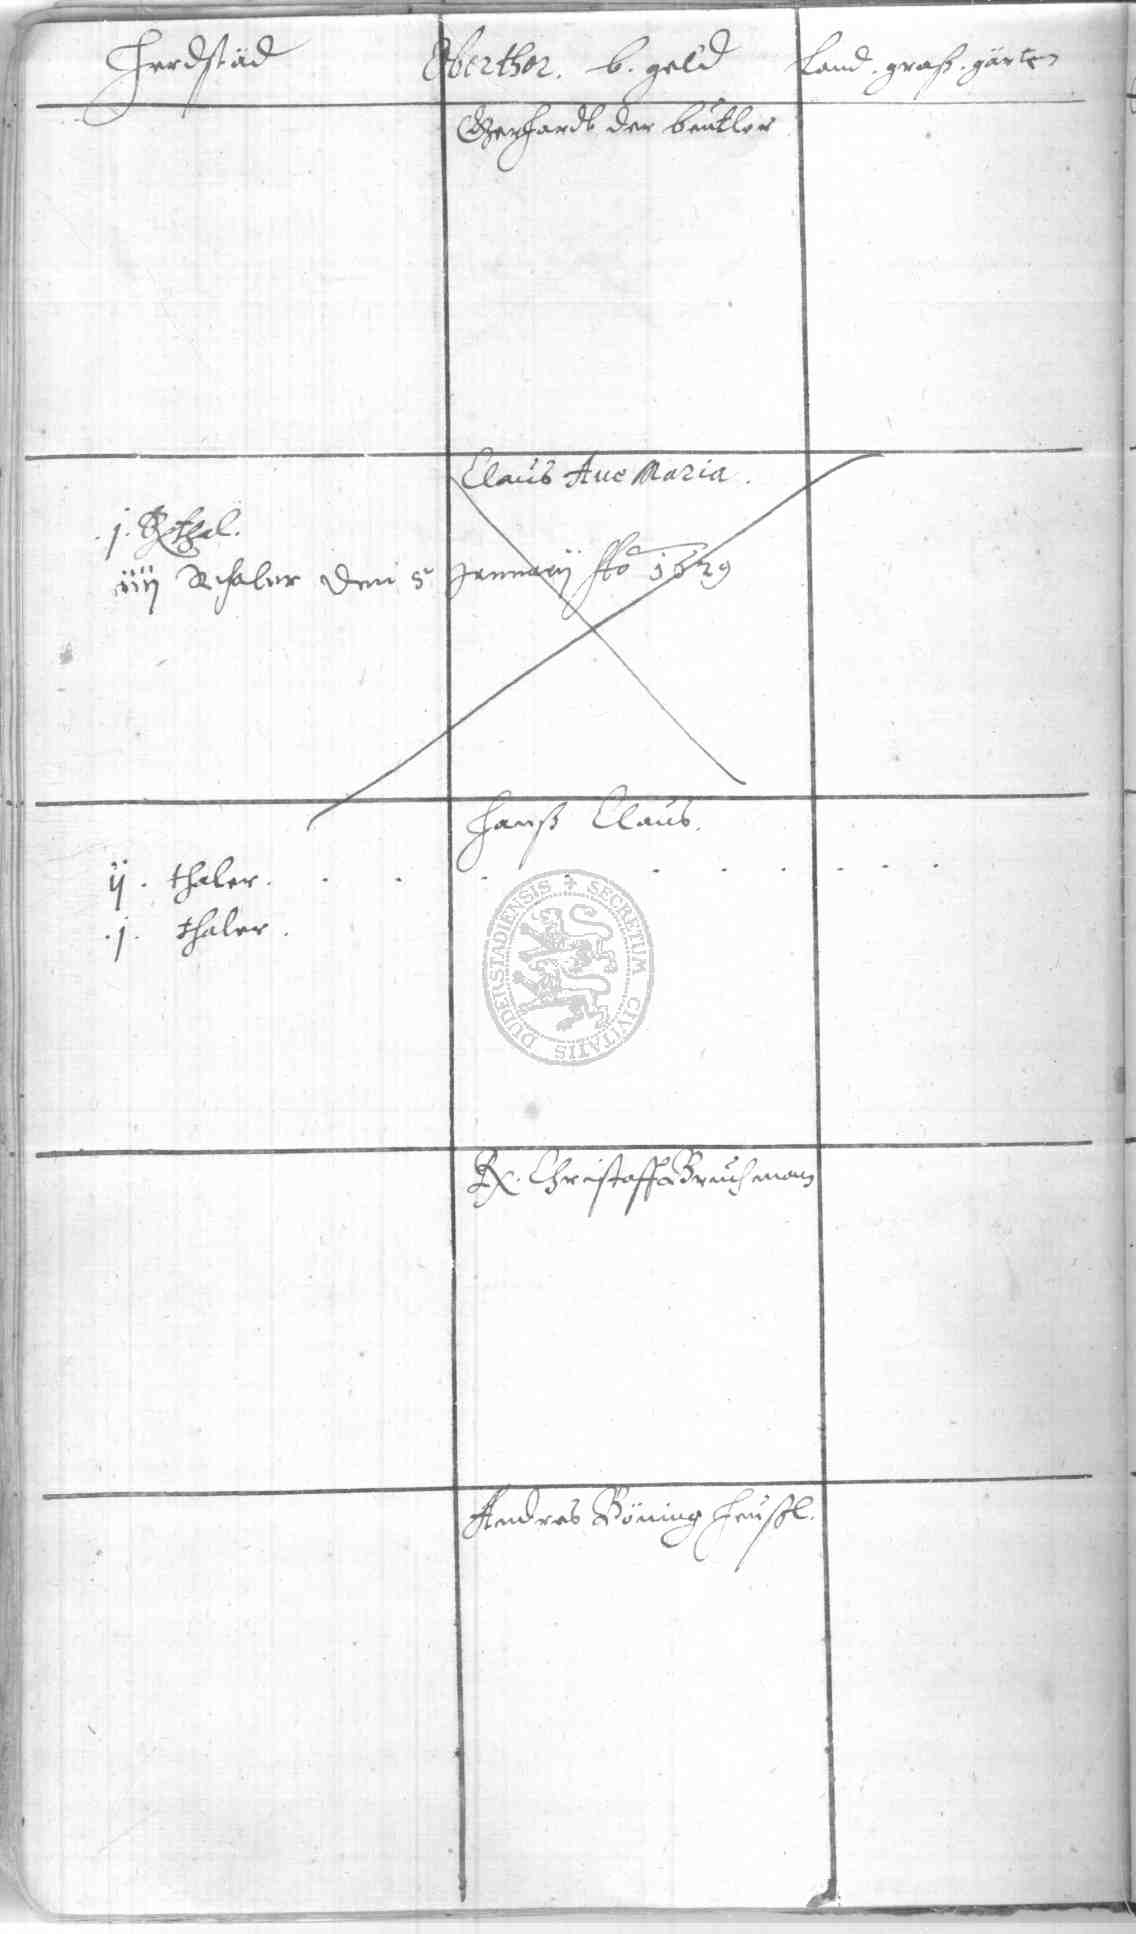 Herdstäd Oberthor. b. geld Land. graß. gärten
Gerhardt der beutler
Claus Aue Maria.
.j. Rthal.
iiij Rthaler den 5 Januarij Ao 1629
Hanß Claus.
ij. thaler. . . . . . . . . . .
.j. thaler.
DUDERSTADIENSIS + SECRETUM CIVITATIS
Christoff Bruchman
Andres Böning Heußl.